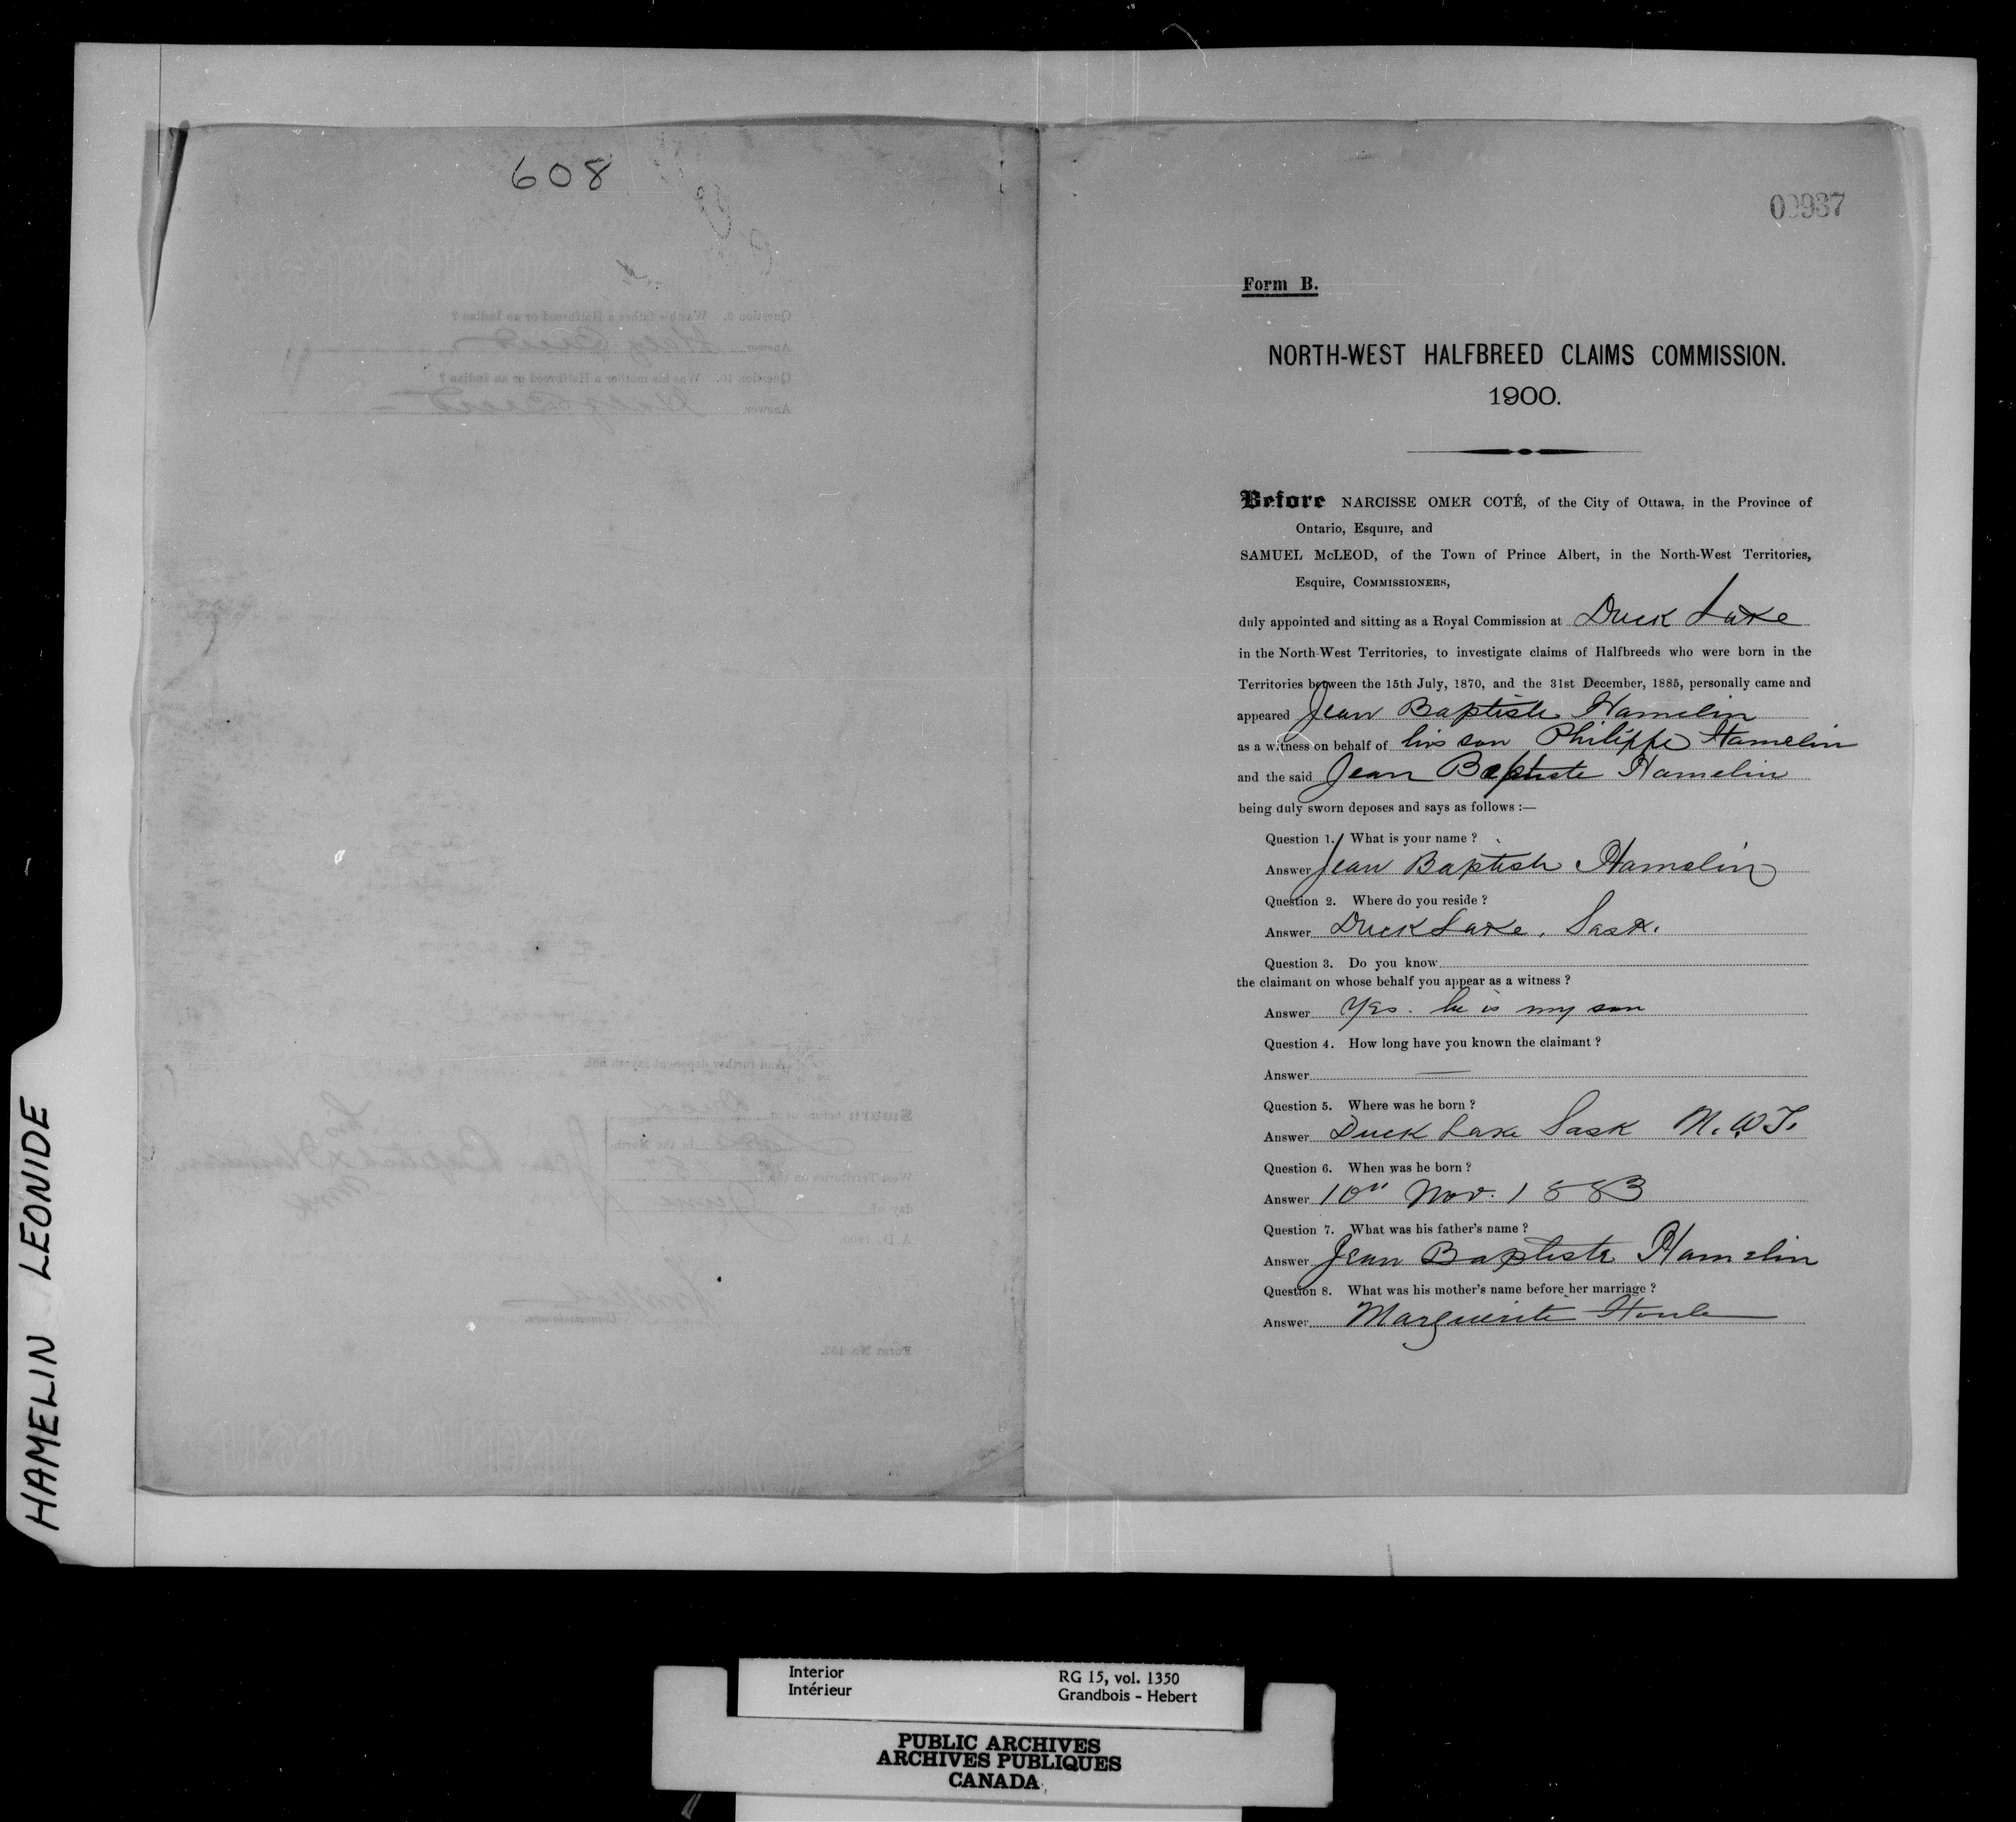 608
00937
Form B.
NORTH-WEST HALFBREED CLAIMS COMMISSION.
1900.
Before NARCISSE OMER COTÉ, of the City of Ottawa, in the Province of
Ontario, Esquire, and
SAMUEL McLEOD, of the Town of Prince Albert, in the North-West Territories,
Esquire, COMMISSIONERS,
duly appointed and sitting as a Royal Commission at Duck Lake
in the North-West Territories, to investigate claims of Halfbreeds who were born in the
Territories between the 15th July, 1870, and the 31st December, 1885, personally came and
appeared Jean Baptiste Hamelin
as a witness on behalf of his son Philippe Hamelin
and the said Jean Baptiste Hamelin
being duly sworn deposes and says as follows :—
Question 1. What is your name ?
Answer Jean Baptiste Hamelin
Question 2. Where do you reside ?
Answer Duck Lake, Sask.
Question 3. Do you know
the claimant on whose behalf you appear as a witness ?
Answer Yes. he is my son
Question 4. How long have you known the claimant ?
Answer —
Question 5. Where was he born ?
Answer Duck Lake Sask N.W.T.
Question 6. When was he born ?
Answer 10" Nov. 1883
Question 7. What was his father's name ?
Answer Jean Baptiste Hamelin
Question 8. What was his mother's name before her marriage ?
Answer Marguerite Houle
HAMELIN LEONIDE
Interior
Intérieur
RG 15, vol. 1350
Grandbois - Hebert
PUBLIC ARCHIVES
ARCHIVES PUBLIQUES
CANADA